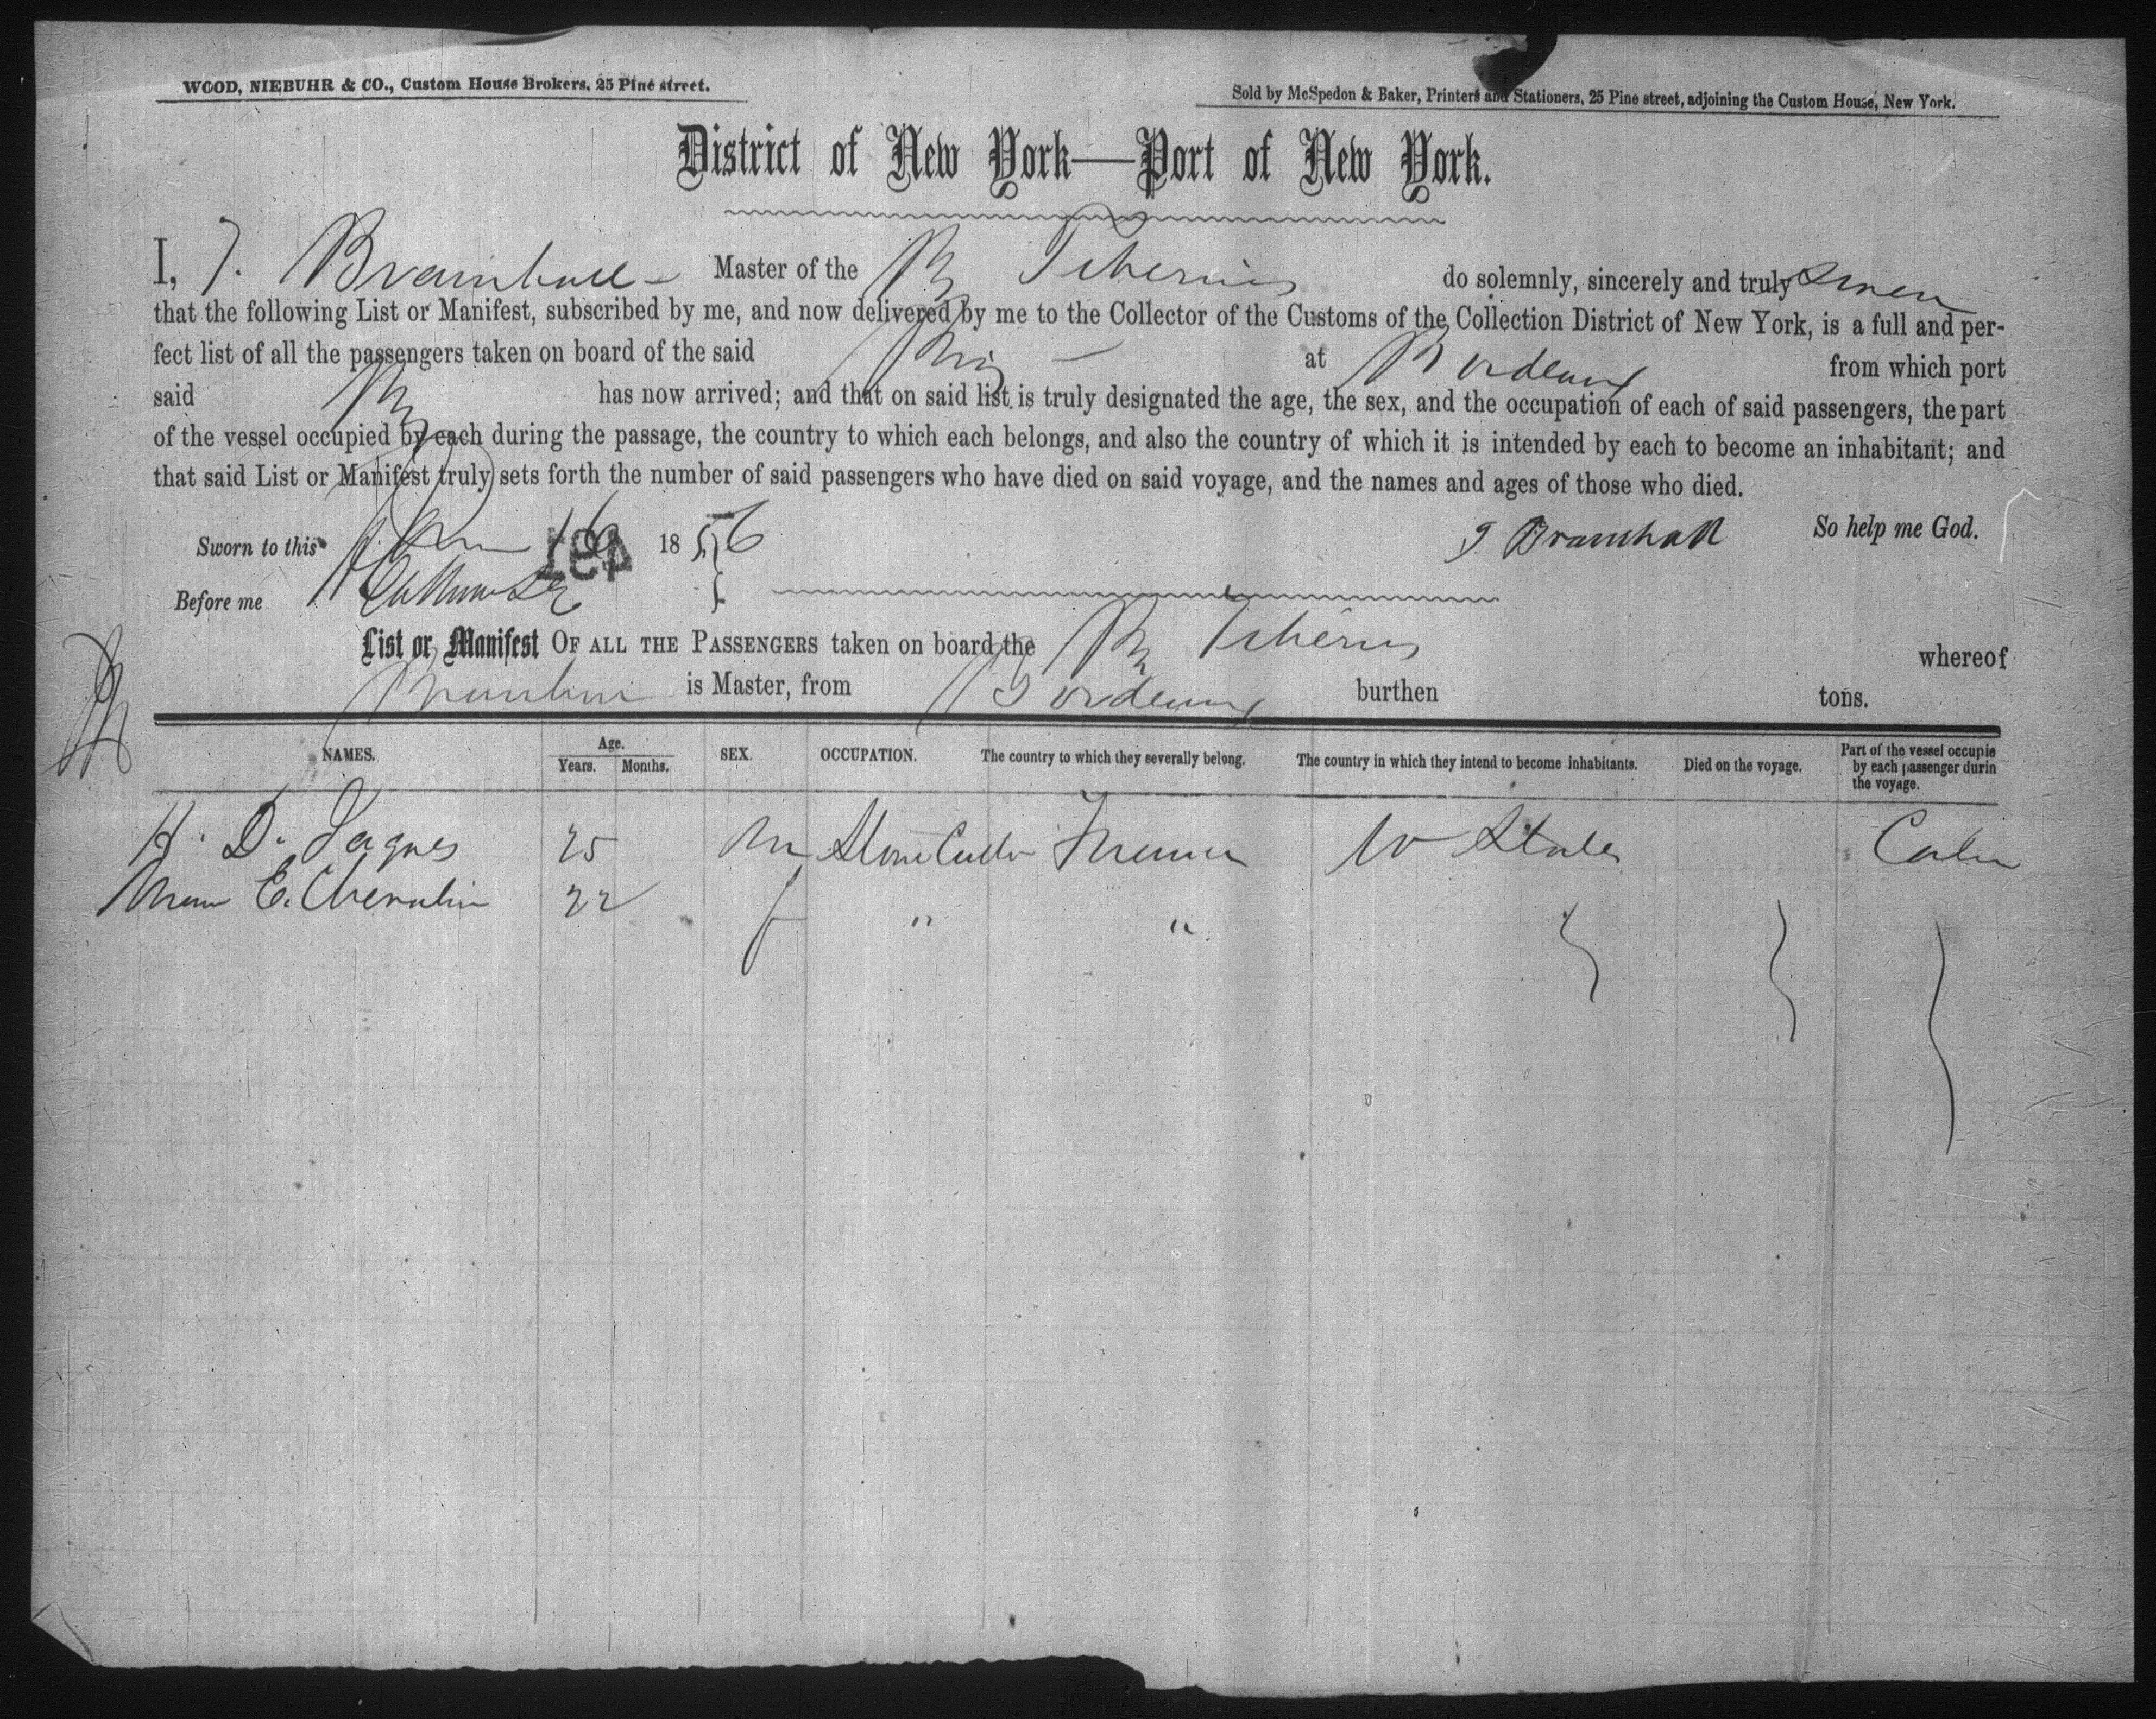 WOOD, NIEBUHR & CO., Custom House Brokers, 25 Pine street.
Sold by McSpedon & Baker, Printers and Stationers, 25 Pine street, adjoining the Custom House, New York.
District of New York—Port of New York.
I, J. Bramhall Master of the Br Tiberius do solemnly, sincerely and truly swear
that the following List or Manifest, subscribed by me, and now delivered by me to the Collector of the Customs of the Collection District of New York, is a full and per-
fect list of all the passengers taken on board of the said Brig at Bordeaux from which port
said Brig has now arrived; and that on said list is truly designated the age, the sex, and the occupation of each of said passengers, the part
of the vessel occupied by each during the passage, the country to which each belongs, and also the country of which it is intended by each to become an inhabitant; and
that said List or Manifest truly sets forth the number of said passengers who have died on said voyage, and the names and ages of those who died.
Sworn to this 16 1856 J. Bramhall So help me God.
Before me
List or Manifest OF ALL THE PASSENGERS taken on board the Br Tiberius whereof
Bramhall is Master, from Bordeaux burthen tons.
NAMES. Age. Years. Months. SEX. OCCUPATION. The country to which they severally belong. The country in which they intend to become inhabitants. Died on the voyage. Part of the vessel occupie by each passenger durin the voyage.
H. D. Jaques 25 M Stone Cutter France U States Cabin
E. Chevalier 22 f " "